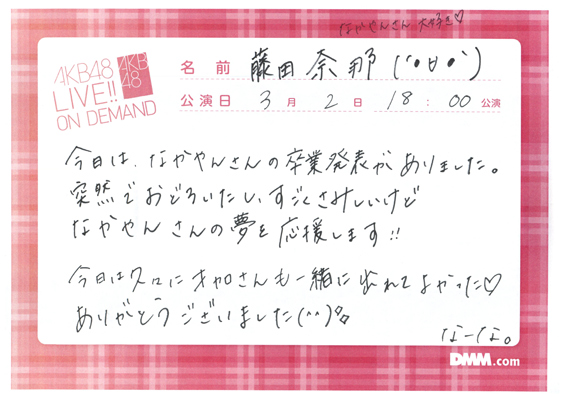 なかやんさん 大好き♡
AKB48
LIVE!!
ON DEMAND
AKB
48
名前 藤田奈那(´•ㅂ•`)
公演日 3月2日 18:00公演
今日は、なかやんさんの卒業発表がありました。
突然でおどろいたし、すごくさみしいけど
なかやんさんの夢を応援します!!
今日は久々に才加さんも一緒に出れてよかった♡
ありがとうございました(^^)
なーな。
DMM.com